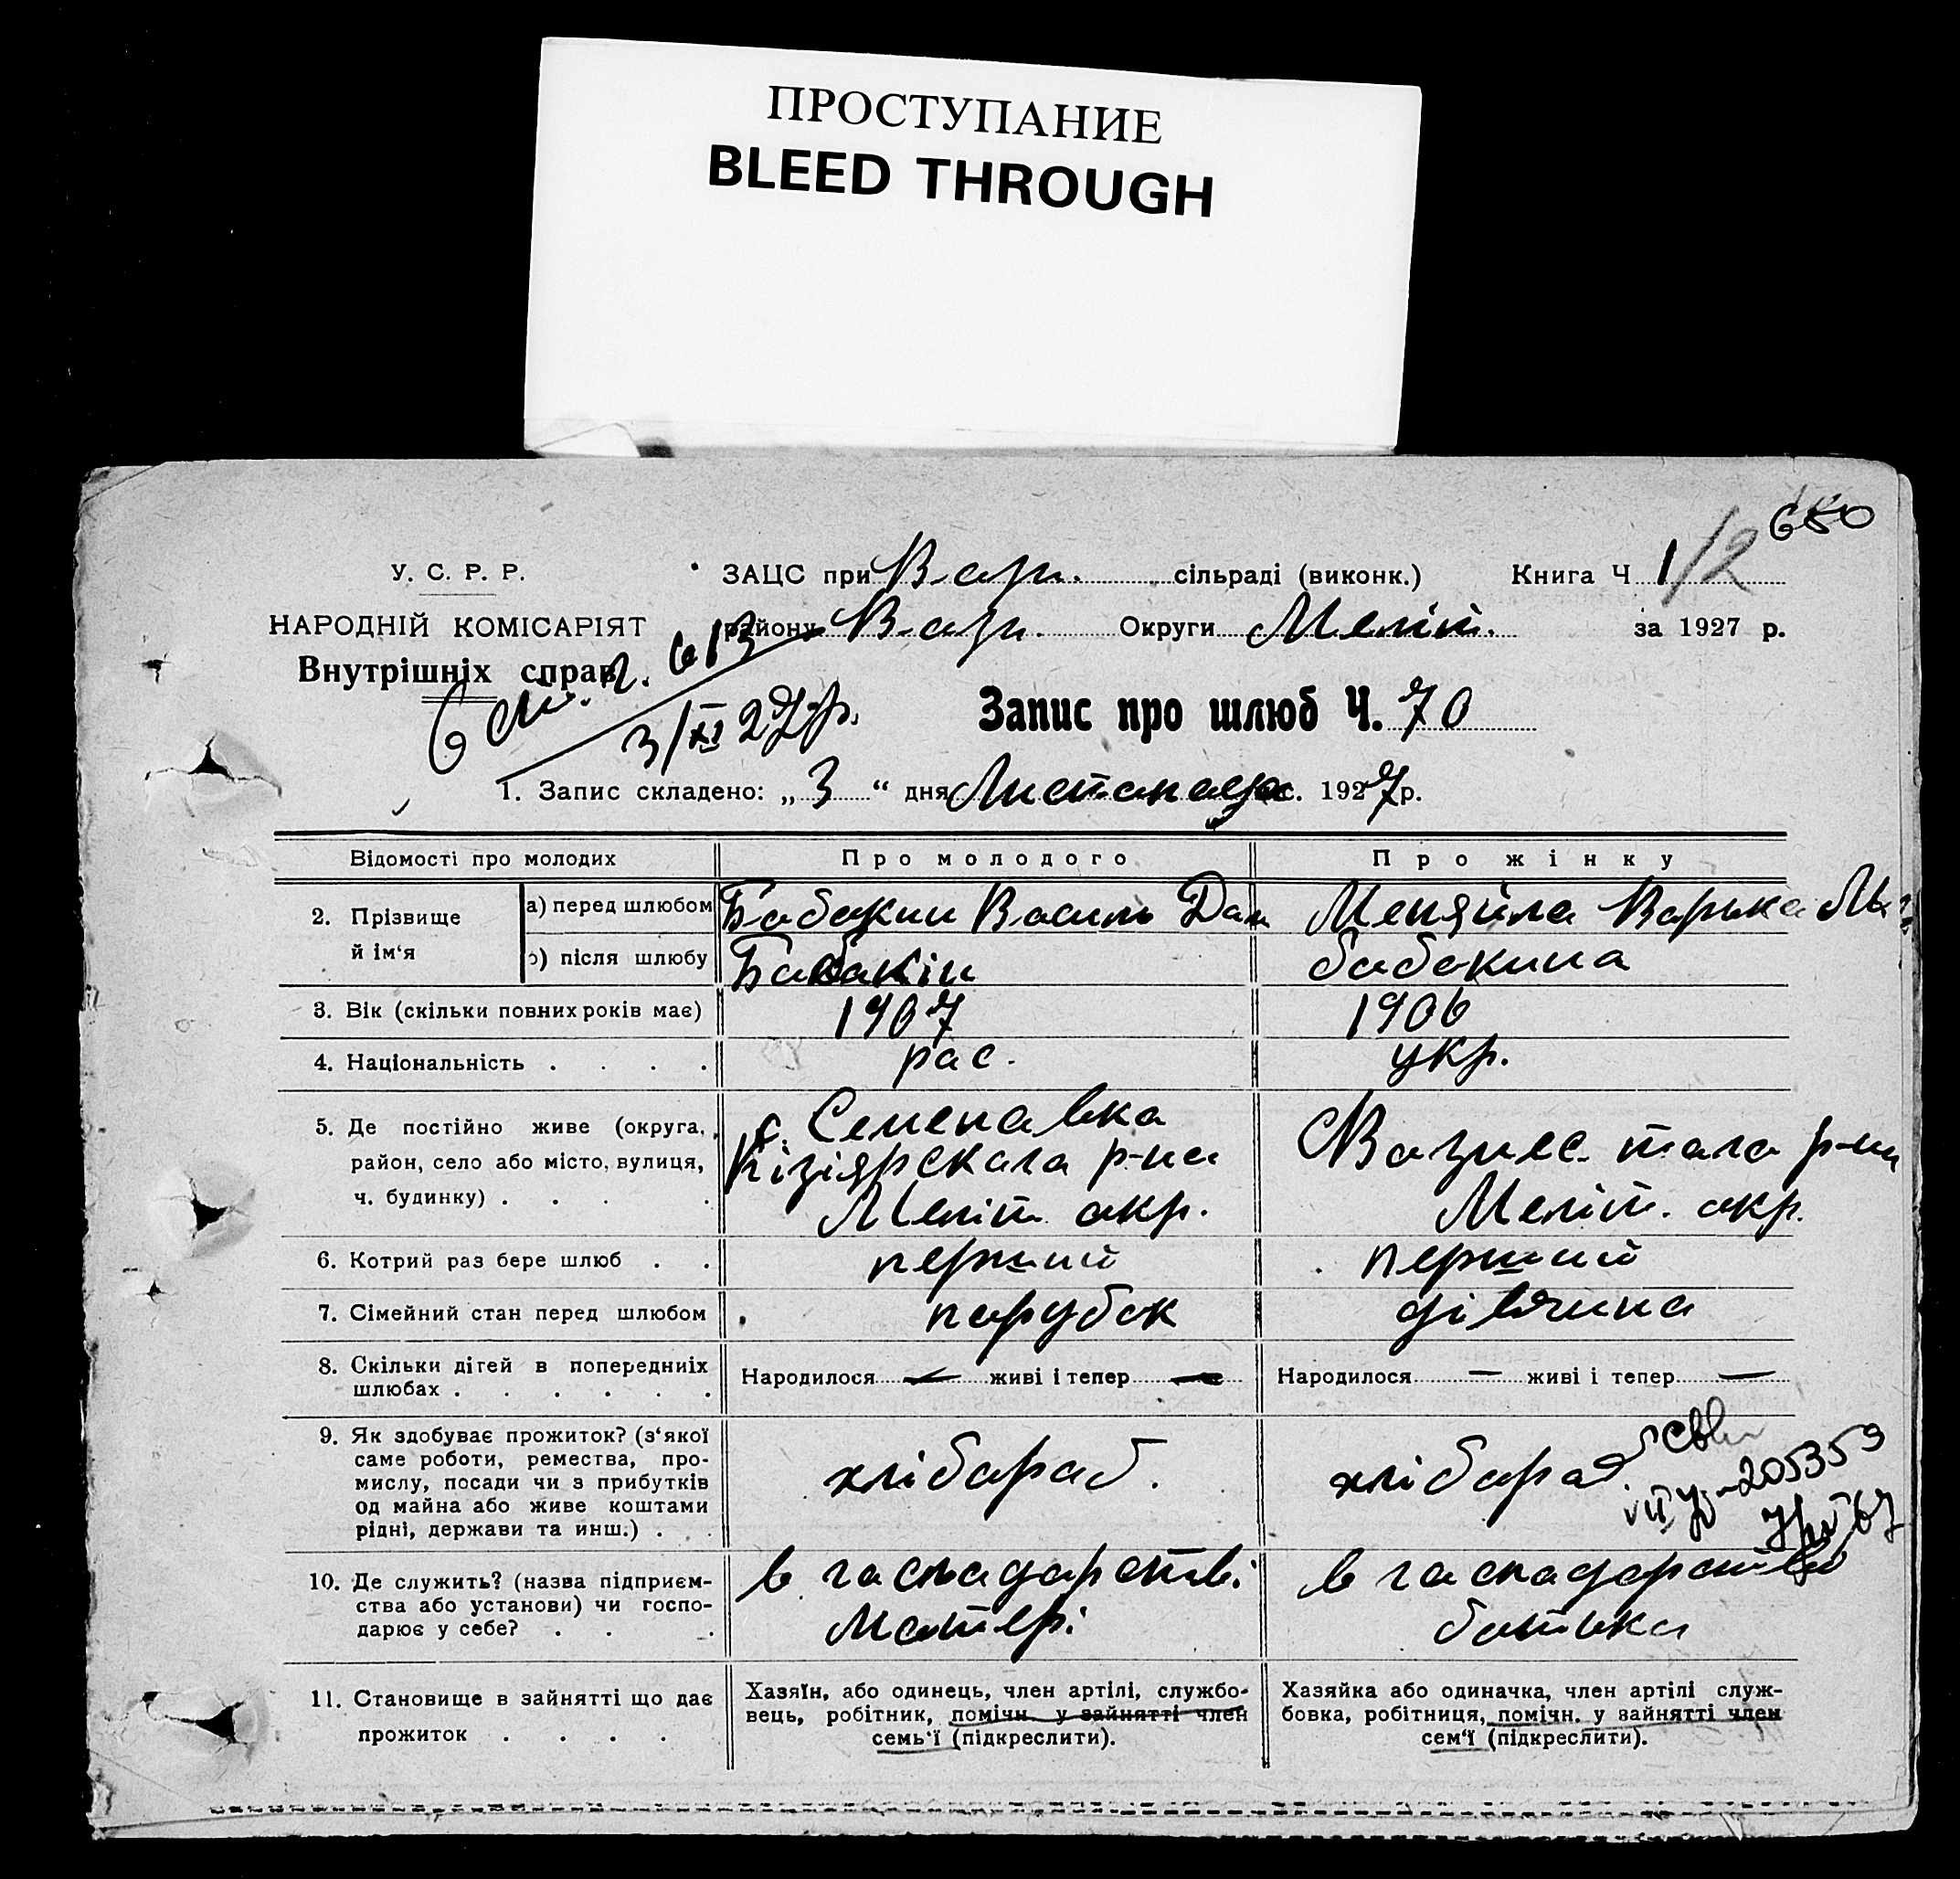 ПРОСТУПАНИЕ
BLEED THROUGH
650
У. С. Р. Р.
ЗАЦС при Возн. сільраді (виконк.) Книга Ч 1/2
НАРОДНІЙ КОМІСАРІЯТ
району Возн. Округи Меліт. за 1927 р.
Внутрішніх справ
613
3/XI 27 р.
Запис про шлюб Ч. 70
1. Запис складено: „ 3 “ дня Листопада с. 1927 р.
Відомості про молодих Про молодого Про жінку
2. Прізвище й ім‘я
а) перед шлюбом Бабакин Василь Дан Меняйла Варька Ми
б) після шлюбу Бабакін бабакина
3. Вік (скільки повних років має) 1907 1906
4. Національність . . . . рас. укр.
5. Де постійно живе (округа, с. Семенавка
район, село або місто, вулиця, Кізіярскага р-на Вазнес. тага р-на
ч. будинку) . . . . Меліт. акр. Меліт. акр.
6. Котрий раз бере шлюб . . перший перший
7. Сімейний стан перед шлюбом парубок дівчина
8. Скільки дітей в попередниїх
шлюбах . . . . . .
Народилося — живі і тепер — Народилося — живі і тепер —
9. Як здобуває прожиток? (з‘якої
саме роботи, ремества, про-
мислу, посади чи з прибутків
од майна або живе коштами
рідні, держави та инш.) . .
хлібараб. хлібараб.
205359
10. Де служить? (назва підприєм-
ства або установи) чи госпо-
дарює у себе? . . .
в гаспадарстві в гаспадарстві
матері батька
11. Становище в зайнятті що дає
прожиток . . . .
Хазяїн, або одинець, член артілі, службо-
вець, робітник, помічн. у зайнятті член
семь‘ї (підкреслити).
Хазяйка або одиначка, член артілі служ-
бовка, робітниця, помічн. у зайнятті член
сем‘ї (підкреслити).